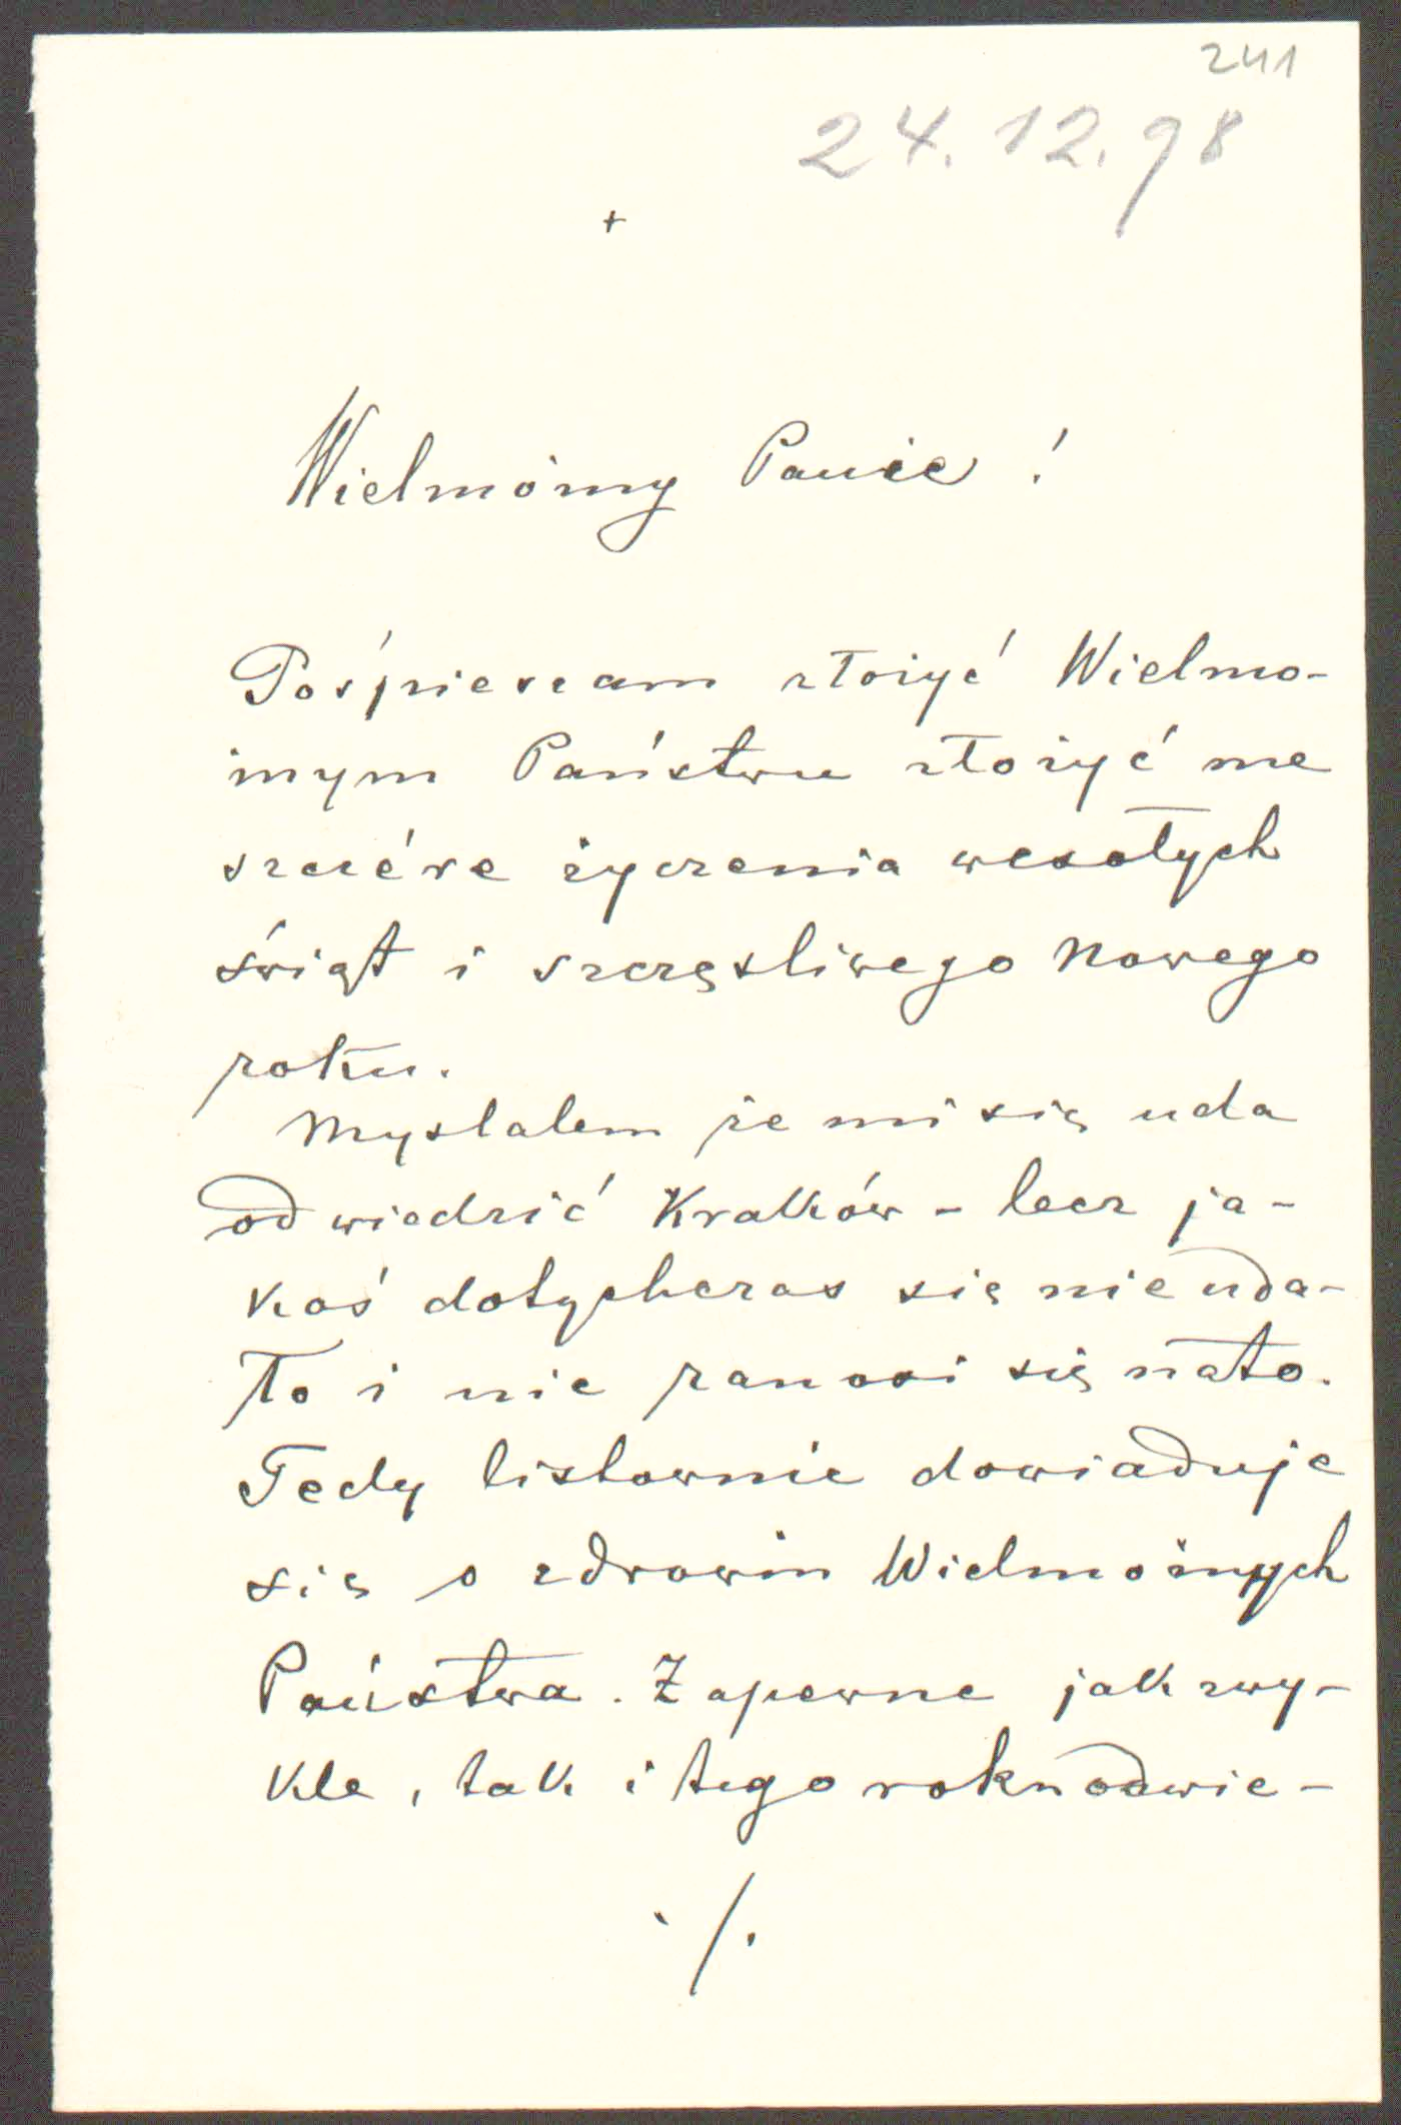 241
24.12.98
+
Wielmożny Panie!
Pośpieszam złożyć Wielmo-
żnym Państwu złożyć me
szczére życzenia wesołych
świąt i szczęsliwego Nowego
roku.
Myslalem że mi się uda
odwiedzić Kraków - lecz ja-
koś dotychczas się nie uda-
ło i nie zanosi się nato.
Tedy listownie dowiaduje
się o zdrowiu Wielmożnych
Państwa. Zapewne jak zwy-
kle, tak i tego roku odwie-
./.